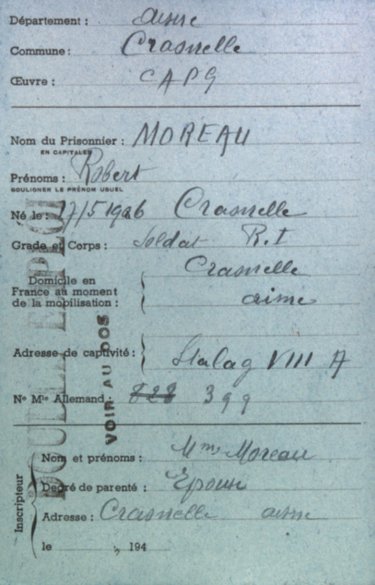 Département : aisne
Commune : Crasnelle
Œuvre : CAPG
Nom du Prisonnier : MOREAU
EN CAPITALES
Prénoms : Robert
SOULIGNER LE PRÉNOM USUEL
Né le : 17/5 1906 Crasnelle
Grade et Corps : Soldat R.I
Domicile en France au moment de la mobilisation : Crasnelle
aisne
Adresse de captivité : Stalag VIII A
Nº Mle Allemand : 828 399
VOIR AU DOS
Inscripteur
Nom et prénoms : Mme Moreau
Degré de parenté : Epouse
Adresse : Crasnelle aisne
le , 194